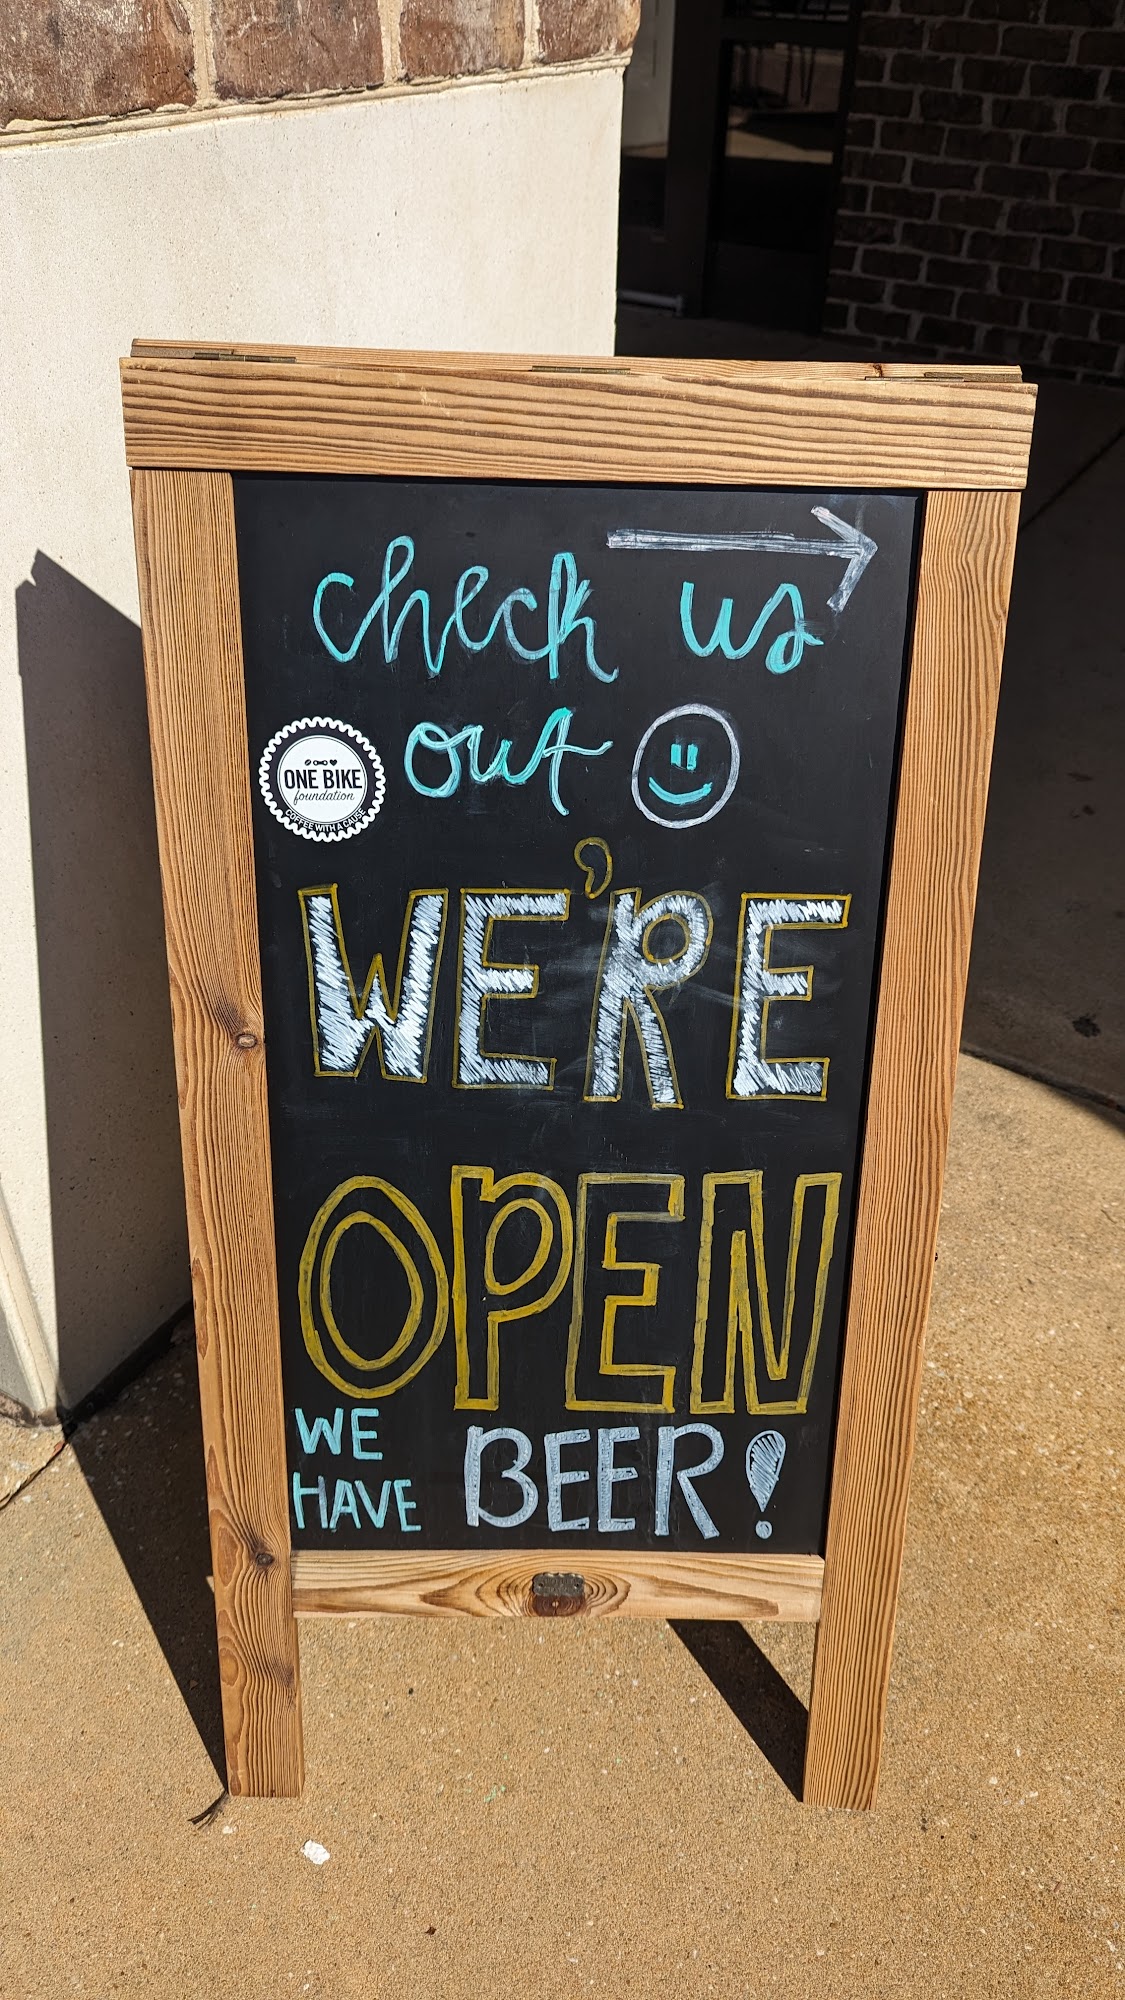 check us
out
ONE BIKE
foundation
COFFEE WITH A CAUSE
WE'RE
OPEN
WE
HAVE BEER!